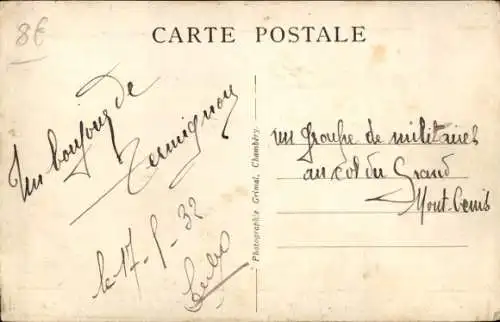 8€
CARTE POSTALE
Un bonjour de
Termignon
le 17-8-32
Photographie Grimal, Chambéry.
un groupe de militaires
au col du Grand
Mont-Cenis